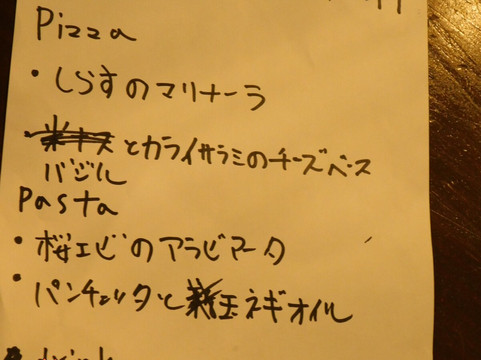 Pizza
・しらすのマリナーラ
とカライサラミのチーズベース
バジル
Pasta
・桜エビのアラビアータ
・パンチェッタと玉ネギオイル